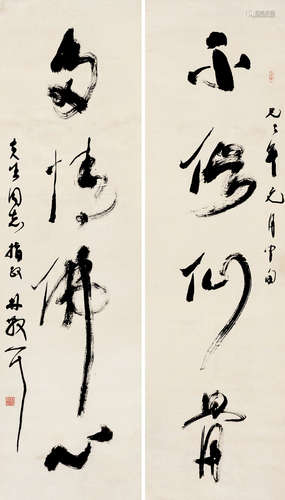 不俗仙骨
年元月中旬
多情佛心
生同志指政 林散耳